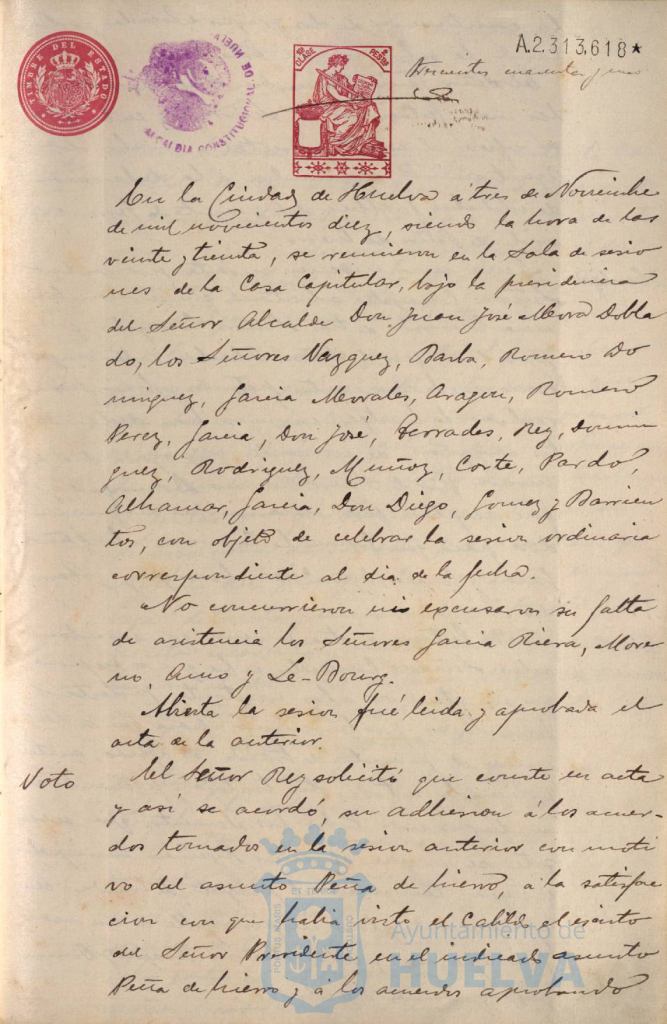 TIMBRE DEL ESTADO
ALCALDIA CONSTITUCIONAL DE HUELVA
CLASE
PESETAS
A.2.313.618★
Trescientos cuarenta y uno
En la Ciudad de Huelva á tres de Noviembre
de mil novecientos diez, siendo la hora de las
veinte y treinta, se reunieron en la Sala de sesio
nes de la Casa Capitular, bajo la presidencia
del Señor Alcalde Don Juan José Mora Dobla
do, los Señores Vazquez, Barba, Romero Do
minguez, Garcia Morales, Aragon, Romero
Perez, Garcia, Don José, Terrades, Rey, Domin
guez, Rodriguez, Muñoz, Corte, Pardo,
Alhamar, Garcia, Don Diego, Gomez y Barrien
tos, con objeto de celebrar la sesion ordinaria
correspondiente al dia de la fecha.
No concurrieron ni excusaron su falta
de asistencia los Señores Garcia Riera, More
no, y Le-Bourg.
Abierta la sesion fué leida y aprobada el
acta de la anterior.
Voto
El Señor Rey solicitó que conste en acta
y así se acordó, su adhesion á los acuer
dos tomados en la sesion anterior con moti
vo del asunto Peña de hierro, á la satisfac
cion con que habia visto el Cabildo el éxito
del Señor Presidente en el indicado asunto
Peña de hierro y á los acuerdos aprobando
Ayuntamiento de
HUELVA